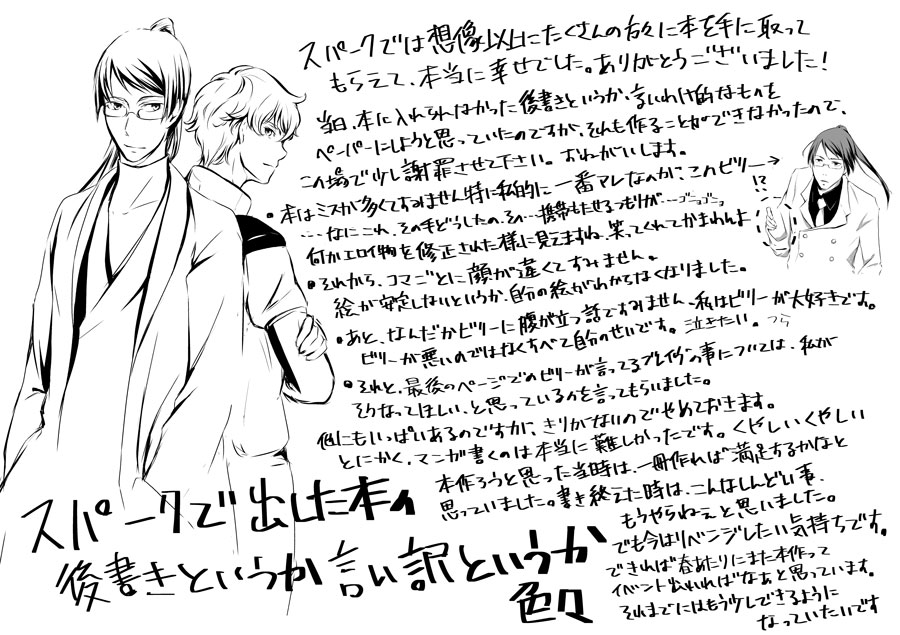 スパークでは想像以上にたくさんの方々に本を手に取って
もらえて、本当に幸せでした。ありがとうございました！
当日、本に入れられなかった後書きというか、言いわけ的なものを
ペーパーにしようと思っていたのですが、それも作ることができなかったので、
この場で少し謝罪させて下さい。おねがいします。
・本はミスが多くてすみません特に私的に一番アレなのが、このビリー→
!?
…なにこれ、その手どうしたの、その…携帯もたせるつもりが…ゴラゴラ
何かエロイ物を修正された様に見えますね、笑ってくれてかまわんよ
・それから、コマごとに顔が違くてすみません。
絵が安定しないというか、自分の絵がわからなくなりました。
・あと、なんだかビリーに腹が立つ話ですみません、私はビリーが大好きです。
ビリーが悪いのではなくすべて自分のせいです。泣きたい。つら
・それと、最後のページでのビリーが言ってるブレイヴの事については、私が
そうなってほしい、と思っているかを言ってもらいました。
他にもいっぱいあるのですが、きりがないのでやめておきます。
とにかく、マンガ書くのは本当に難しかったです。くやしいくやしい
本作ろうと思った当時は、一冊作れば満足するかなと
思っていました。書き終えた時は、こんなしんどい事、
もうやらねぇと思いました。
でも今はリベンジしたい気持ちです。
できれば春あたりにまた本作って
イベント出れればなぁと思っています。
それまでにはもう少しできるように
なっていたいです
スパークで出した本の
後書きというか言い訳というか
色々